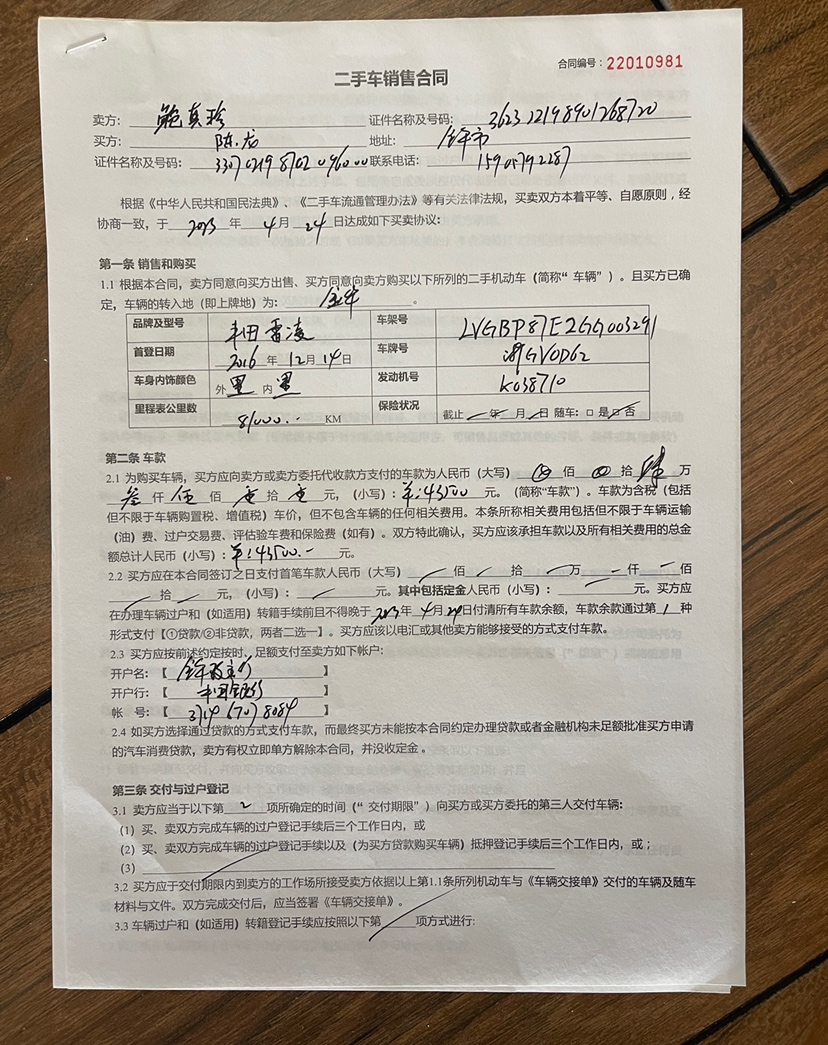 合同编号：22010981
二手车销售合同
卖方：鲍真珍 证件名称及号码：362312198901268720
买方：陈龙 地址：
证件名称及号码： 联系电话：
根据《中华人民共和国民法典》、《二手车流通管理办法》等有关法律法规，买卖双方本着平等、自愿原则，经
协商一致，于 2023 年 4 月 24 日达成如下买卖协议：
第一条 销售和购买
1.1 根据本合同，卖方同意向买方出售、买方同意向卖方购买以下所列的二手机动车（简称“车辆”）。且买方已确
定，车辆的转入地（即上牌地）为： 。
品牌及型号 丰田雷凌 车架号 LVGBP87E2GG003291
首登日期 2016 年 12 月 14 日 车牌号 GV0D62
车身内饰颜色 外 黑 内 黑 发动机号 K038710
里程表公里数 81000.- KM 保险状况 截止 年 月 日 随车：□ 是 □ 否
第二条 车款
2.1 为购买车辆，买方应向卖方或卖方委托代收款方支付的车款为人民币（大写） 佰 拾 肆 万
叁 仟 伍 佰 零 拾 零 元，（小写）：￥:43500 元。（简称“车款”）。车款为含税（包括
但不限于车辆购置税、增值税）车价，但不包含车辆的任何相关费用。本条所称相关费用包括但不限于车辆运输
（油）费、过户交易费、评估验车费和保险费（如有）。双方特此确认，买方应该承担车款以及所有相关费用的总金
额总计人民币（小写）：￥:43500.- 元。
2.2 买方应在本合同签订之日支付首笔车款人民币（大写） 佰 拾 万 仟 佰
拾 元，（小写）： 元。其中包括定金人民币（小写）： 元。买方应
在办理车辆过户和（如适用）转籍手续前且不得晚于 2023 年 4 月 24 日付清所有车款余额，车款余款通过第 1 种
形式支付【①贷款②非贷款，两者二选一】。买方应该以电汇或其他卖方能够接受的方式支付车款。
2.3 买方应按前述约定按时、足额支付至卖方如下帐户：
开户名：【 】
开户行：【 中国银行 】
帐 号：【 】
2.4 如买方选择通过贷款的方式支付车款，而最终买方未能按本合同约定办理贷款或者金融机构未足额批准买方申请
的汽车消费贷款，卖方有权立即单方解除本合同，并没收定金。
第三条 交付与过户登记
3.1 卖方应当于以下第 2 项所确定的时间（“交付期限”）向买方或买方委托的第三人交付车辆：
(1) 买、卖双方完成车辆的过户登记手续后三个工作日内，或
(2) 买、卖双方完成车辆的过户登记手续以及（为买方贷款购买车辆）抵押登记手续后三个工作日内，或；
(3)
3.2 买方应于交付期限内到卖方的工作场所接受卖方依据以上第1.1条所列机动车与《车辆交接单》交付的车辆及随车
材料与文件。双方完成交付后，应当签署《车辆交接单》。
3.3 车辆过户和（如适用）转籍登记手续应按照以下第 项方式进行: